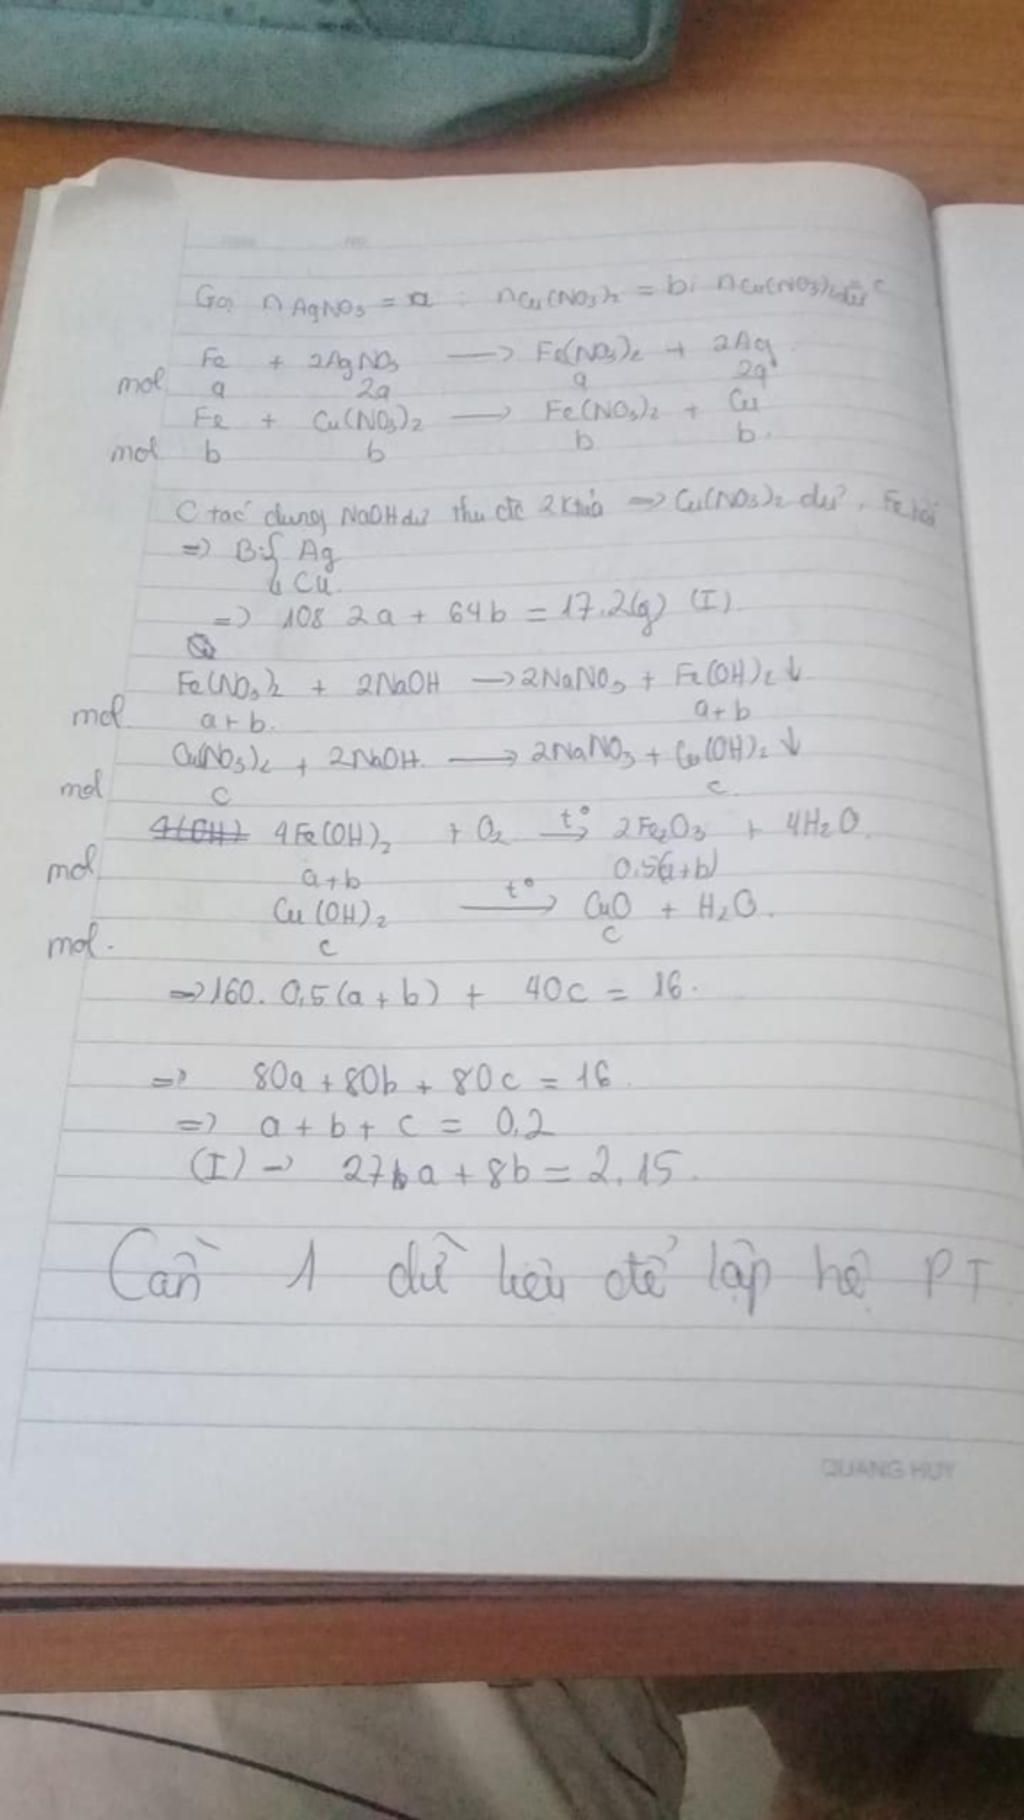 Gọi nAgNO3 = a ; nCu(NO3)2 = b; nCu(NO3)2dư c
Fe + 2AgNO3 —> Fe(NO3)2 + 2Ag
mol a 2a a 2a
Fe + Cu(NO3)2 —> Fe(NO3)2 + Cu
mol b b b b.
C tác dụng NaOH dư thu đc 2 ktủa => Cu(NO3)2 dư, Fe
=> B: { Ag
Cu.
=> 108 2a + 64b = 17.2(g) (I).
Fe(NO3)2 + 2NaOH —> 2NaNO3 + Fe(OH)2 ↓
mol a+b. a+b
Cu(NO3)2 + 2NaOH. —> 2NaNO3 + Cu(OH)2 ↓
mol c c.
4(OH) 4Fe(OH)2 + O2 t° —> 2Fe2O3 + 4H2O.
mol a+b 0.5(a+b)
Cu(OH)2 t° —> CuO + H2O.
mol. c c
=> 160. 0,5(a+b) + 40c = 16.
=> 80a + 80b + 80c = 16.
=> a + b + c = 0,2
(I) -> 27a + 8b = 2.15.
Cần 1 dữ liệu để lập hệ PT
QUANG HUY